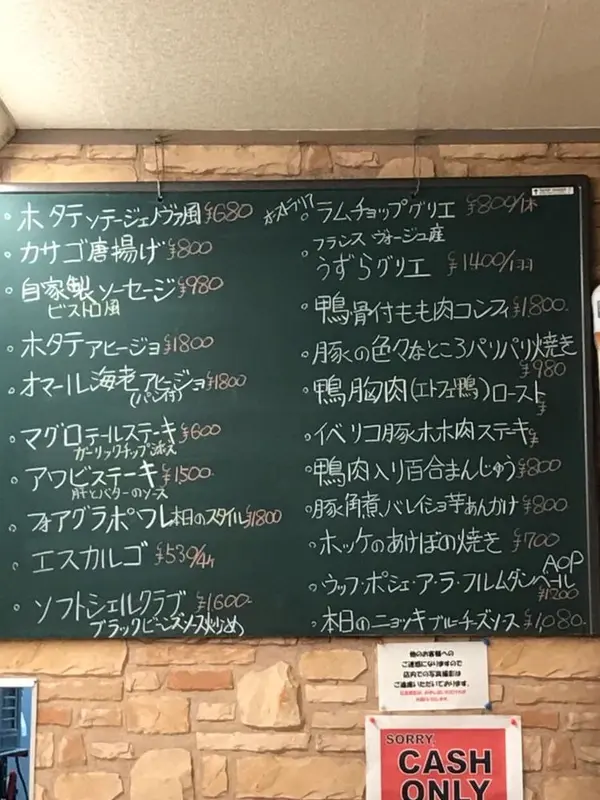 ・ホタテソテージェノヴァ風 ¥680
・カサゴ唐揚げ ¥800
・自家製ソーセージ ¥980
ビストロ風
・ホタテアヒージョ ¥1800
・オマール海老アヒージョ ¥1800
(パン付)
・マグロテールステーキ ¥600
ガーリックチップ添え
・アワビステーキ ¥1500
肝とバターのソース
・フォアグラポワレ本日のスタイル ¥1800
・エスカルゴ ¥539/4ヶ
・ソフトシェルクラブ ¥1600-
ブラックビーンズソース炒め
オーストラリア
・ラムチョップグリエ ¥800/1本
フランス ヴォージュ産
・うずらグリエ ¥1400/1羽
・鴨骨付もも肉コンフィ ¥1800-
・豚の色々なところパリパリ焼き
¥980
・鴨胸肉(エトフェ鴨)ロースト
¥
・イベリコ豚ホホ肉ステーキ ¥
・鴨肉入り百合まんじゅう ¥800
・豚角煮、バレイショ芋あんかけ ¥800
・ホッケのあけぼの焼き ¥700
・ウッフ・ポシェ・ア・ラ・フルムダンベール AOP
¥1200
・本日のニョッキブルーチーズソース ¥1,080-
他のお客様への
ご迷惑になりますので
店内での写真撮影は
ご遠慮いただいております。
SORRY,
CASH
ONLY